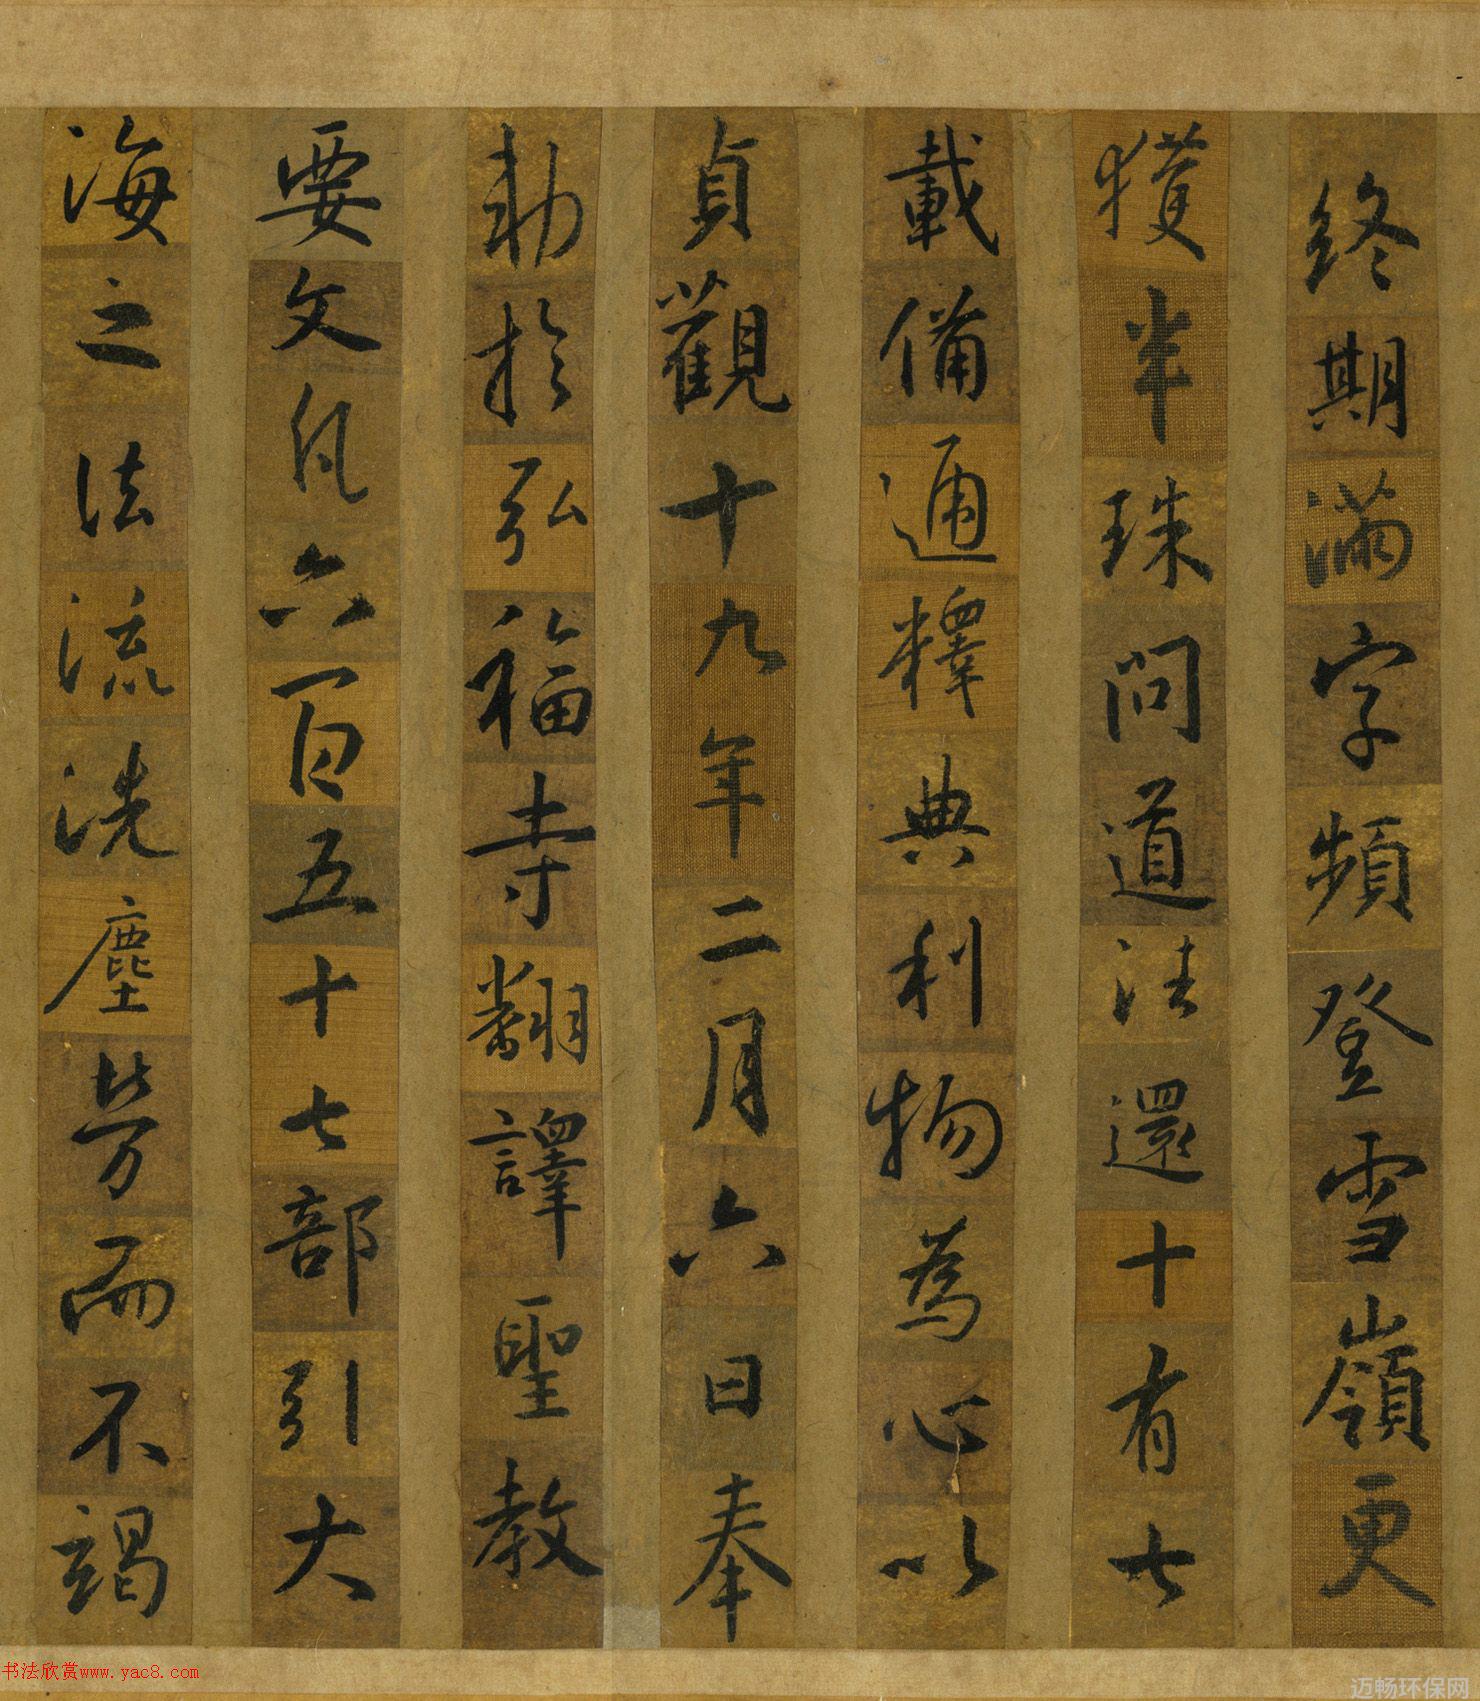 終期滿字頻登雪嶺更
獲半珠問道法還十有七
載備通釋典利物為心以
貞觀十九年二月六日奉
勅於弘福寺翻譯聖教
要文凡六百五十七部引大
海之法流洗塵勞而不竭
书法欣赏www.yac8.com
迈畅环保网